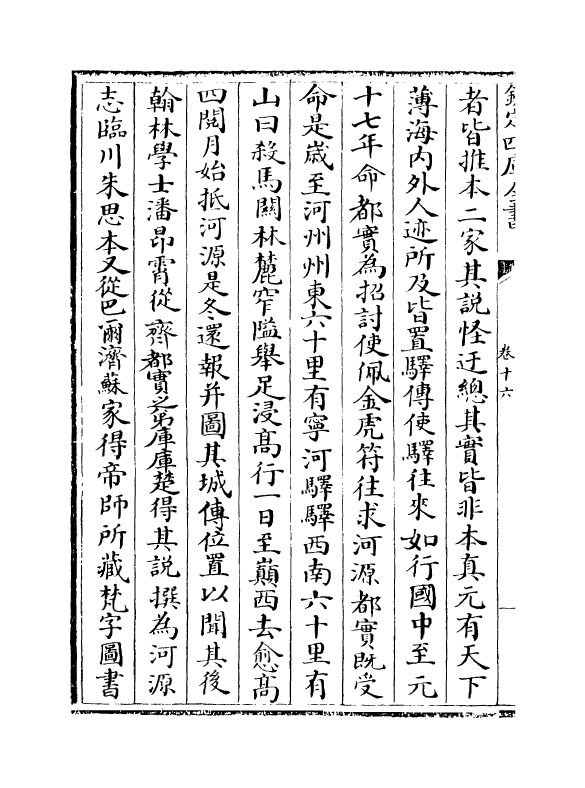 欽定四庫全書
卷十六
者皆推本二家其說怪迂總其實皆非本真元有天下
薄海內外人迹所及皆置驛傳使驛往來如行國中至元
十七年命都實為招討使佩金虎符往求河源都實既受
命是歲至河州州東六十里有寧河驛驛西南六十里有
山曰殺馬關林麓窄隘舉足浸高行一日至巔西去愈高
四閱月始抵河源是冬還報并圖其城傳位置以聞其後
翰林學士潘昂霄從齊都實之弟庫庫楚得其說撰為河源
志臨川朱思本又從巴爾濟蘇家得帝師所藏梵字圖書